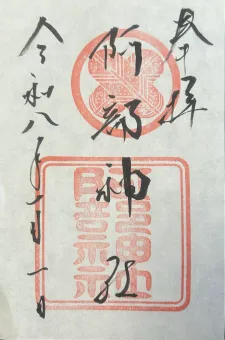 奉拝
阿部神社
令和八年一月一日